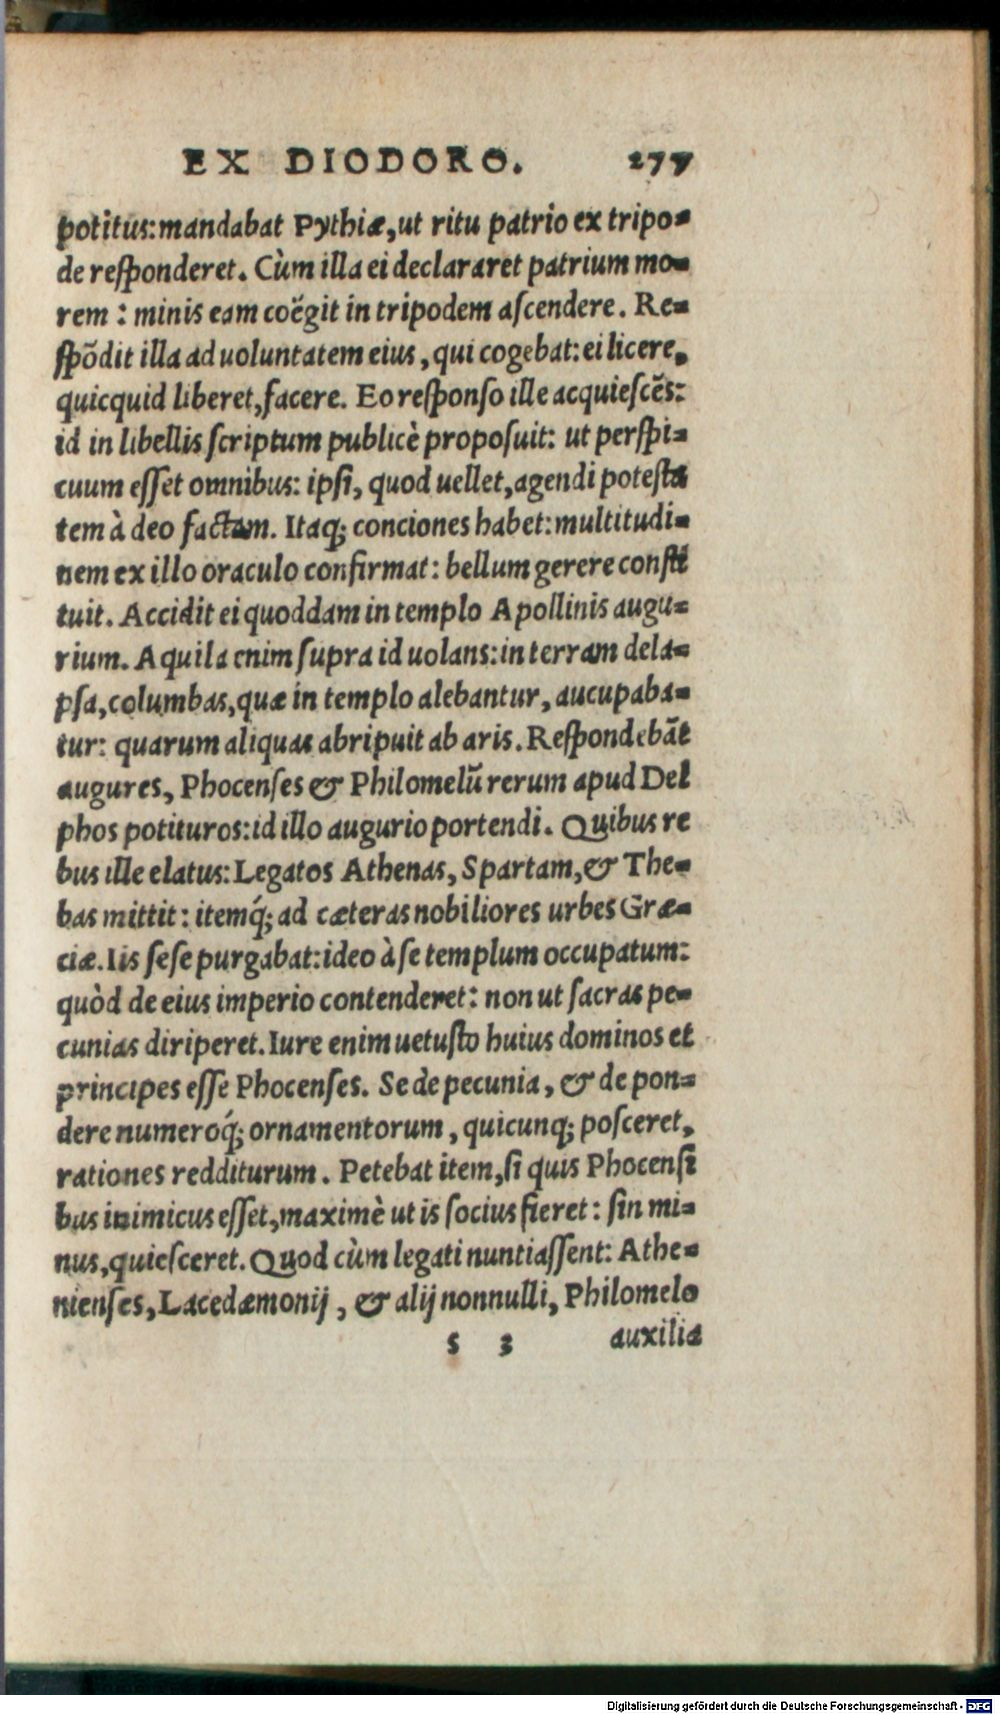 EX DIODORO. 277
potitus: mandabat Pythiæ, ut ritu patrio ex tripo-
de reſponderet. Cùm illa ei declararet patrium mo-
rem: minis eam coëgit in tripodem aſcendere. Re-
ſpõdit illa ad uoluntatem eius, qui cogebat: ei licere,
quicquid liberet, facere. Eo reſponſo ille acquieſcẽs:
id in libellis ſcriptum publicè propoſuit: ut perſpi-
cuum eſſet omnibus: ipſi, quod uellet, agendi poteſta
tem à deo factam. Itaq; conciones habet: multitudi-
nem ex illo oraculo confirmat: bellum gerere conſti
tuit. Accidit ei quoddam in templo Apollinis augu-
rium. Aquila enim ſupra id uolans: in terram dela-
pſa, columbas, quæ in templo alebantur, aucupaba-
tur: quarum aliquas abripuit ab aris. Reſpondebãt
augures, Phocenſes & Philomelũ rerum apud Del
phos potituros: id illo augurio portendi. Quibus re
bus ille elatus: Legatos Athenas, Spartam, & The-
bas mittit: itemq́; ad cæteras nobiliores urbes Græ-
ciæ. Iis ſeſe purgabat: ideo à ſe templum occupatum:
quòd de eius imperio contenderet: non ut ſacras pe-
cunias diriperet. Iure enim uetuſto huius dominos et
principes eſſe Phocenſes. Se de pecunia, & de pon-
dere numeroq́; ornamentorum, quicunq; poſceret,
rationes redditurum. Petebat item, ſi quis Phocenſi
bus inimicus eſſet, maximè ut is ſocius fieret: ſin mi-
nus, quieſceret. Quod cùm legati nuntiaſſent: Athe-
nienſes, Lacedæmonij, & alij nonnulli, Philomelo
s 3 auxilia
Digitalisierung gefördert durch die Deutsche Forschungsgemeinschaft - DFG